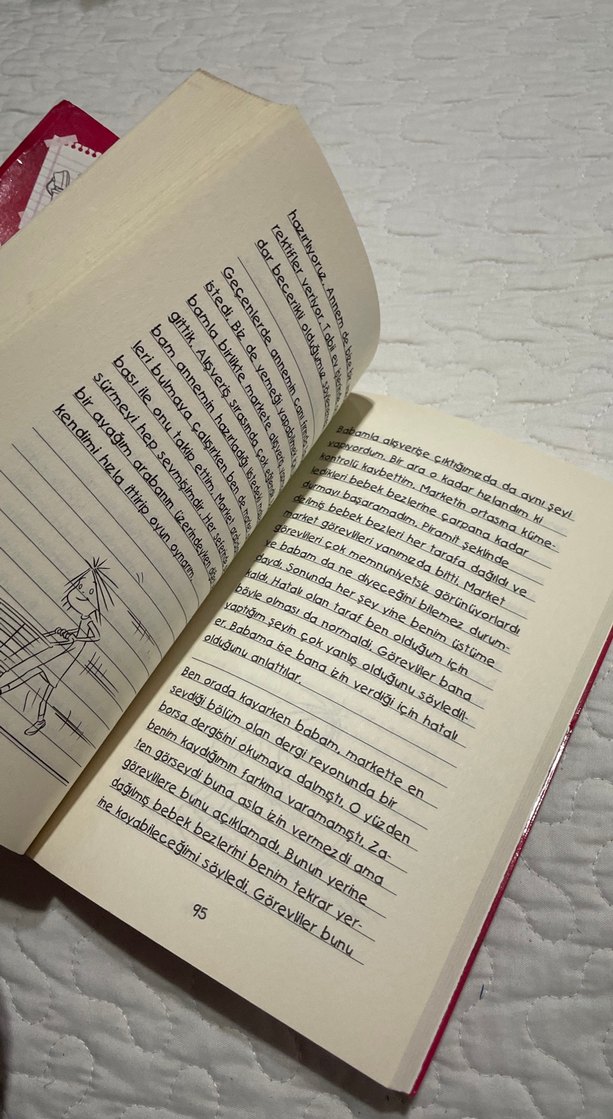 hazırlıyoruz. Annem de bize
rektifler veriyor. Tabii ev
dar becerikli olduğumuz
Geçenlerde annemin canı
istedi. Biz de yemeği yapabilmek
bamla birlikte markete alışveriş
gittik. Alışveriş sırasında çok
bam annemin hazırladığı
leri bulmaya çalışırken ben de
bası ile onu takip ettim. Market
sürmeyi hep sevmişimdir. Her seferinde
bir ayağım arabanın üzerindeyken
kendimi hızla ittirip oyun oynarım.
Babamla alışverişe çıktığımızda da aynı şeyi
yapıyordum. Bir ara o kadar hızlandım ki
kontrolü kaybettim. Marketin ortasına küme-
ledikleri bebek bezlerine çarpana kadar
durmayı başaramadım. Piramit şeklinde
delmiş bebek bezleri her tarafa dağıldı ve
market görevlileri yanımızda bitti. Market
görevlileri çok memnuniyetsiz görünüyorlardı
ve babam da ne diyeceğini bilemez durum-
daydı. Sonunda her şey yine benim üstüme
kaldı. Hatalı olan taraf ben olduğum için
böyle olması da normaldi. Görevliler bana
yaptığım şeyin çok yanlış olduğunu söyledil-
er. Babama ise bana izin verdiği için hatalı
olduğunu anlattılar.
Ben orada kayarken babam, markette en
sevdiği bölüm olan dergi reyonunda bir
borsa dergisini okumaya dalmıştı. O yüzden
benim kaydığımın farkına varamamıştı. Za-
ten görseydi buna asla izin vermezdi ama
görevlilere bunu açıklamadı. Bunun yerine
dağılmış bebek bezlerini benim tekrar yer-
ine koyabileceğimi söyledi. Görevliler bunu
95